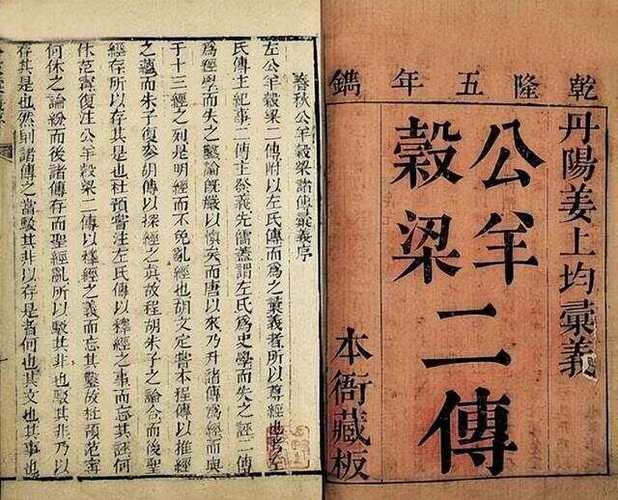 乾隆五年鐫
丹陽姜上均彙義
公羊
穀梁
二傳
本衙藏板
春秋公羊穀梁諸傳彙義序
左公羊穀梁二傳附以左氏傳而爲之彙義者所以尊經也考左
左氏傳主紀事二傳主發義先儒蓋謂左氏爲史學而失之誣二傳
爲經學而失之鑿論旣嚴以愼矣而唐以來乃升諸傳爲經而與
于十三經之列是明經而不免亂經也胡文定嘗本程傳以推經
之蘊而朱子復參胡傳以探經之眞故程胡朱子之論合而後聖
經存所以存其是也杜預嘗注左氏傳以釋經之事而忘其誣何
休范甯復注公羊穀梁二傳以釋經之義而忘其鑿故杜預范甯
何休之論紛而後諸傳存而聖經亂所以駁其非也駁其非乃以
存其是也然則諸傳之當駁其非以存是者何也其文也其事也